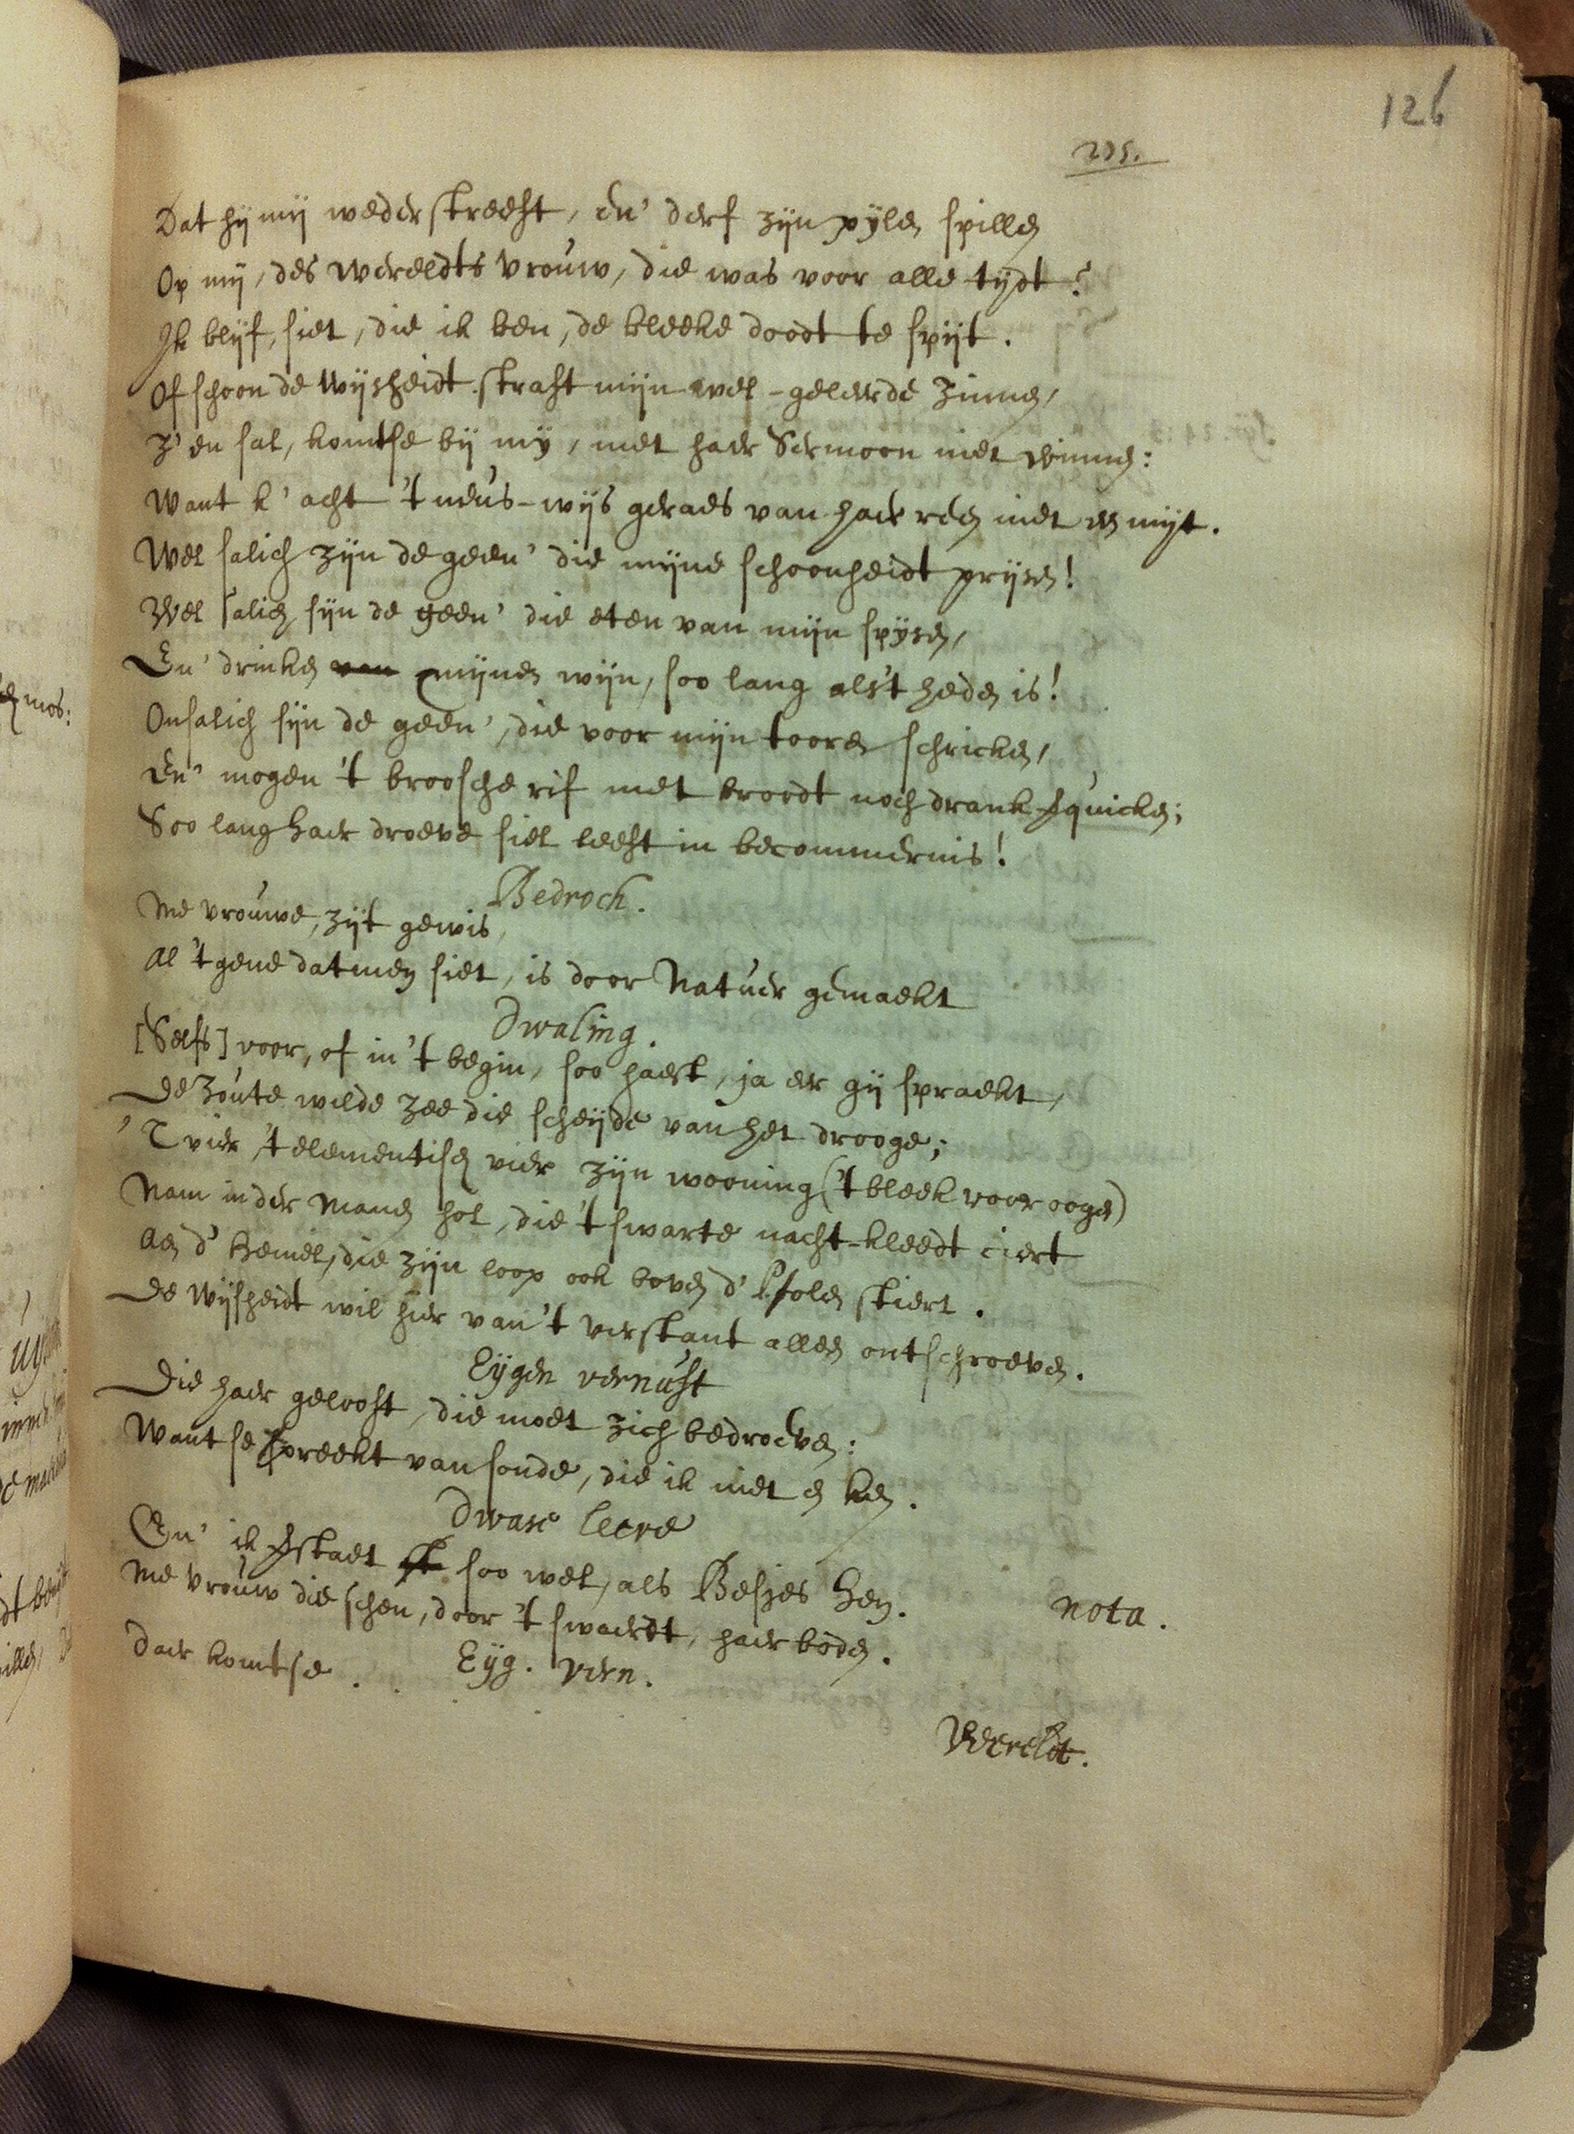 126
235.
Dat hy my wederstreeft, en' derf zyn pylen spillen
Op my, des Wereldts Vrouw, die was voor alle tydt?
Ik blyf, siet, die ik ben, de bleeke doodt te spyt.
Of schoon de Wysheidt straft myn wel-geleerde Zinnen,
Z'en sal, komtse by my, met haer Sermoon niet winnen:
Want k' acht 't neus-wys geraes van haer reen niet een myt.
Wel salich zyn de geen' die myne schoonheidt prysen!
Wel salich syn de geen' die eten van myn spysen,
En' drinken mynen wyn, soo lang als't heden is!
Onsalich syn de geen', die voor myn tooren schricken,
En' mogen 't broosche rif met broodt noch drank quicken;
Soo lang haer droeve siel leeft in becommernis!
Bedroch.
Me vrouwe, zyt gewis,
Al 't gene datmen siet, is door Natuer gemaekt
Dwaling.
[Selfs] voor, of in 't begin, soo haest, ja eer gy spraekt,
De Zoute wilde zee die scheyde van het drooge;
'T vier, 't elementisch vier zyn wooning ('t bleek voor oogen)
Nam in der Manen hol, die 't swarte nacht-kleedt ciert
Aen d' hemel, die zyn loop ook boven d' Polen stiert.
De Wysheidt wil hier van 't verstant alleen ontschroeven.
Eygen vernuft
Die haer gelooft, die moet zich bedroeven:
Want se spreekt van sonde, die ik niet en ken.
Dwase leere
En' ik staet soo wel, als Besjes hen.
nota.
Me vrouw die schen, door 't swaerdt, haer boden.
Eyg. vern.
Daer komtse . . .
Werelt.